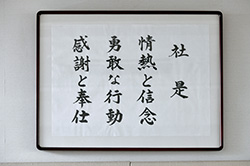 社是
情熱と信念
勇敢な行動
感謝と奉仕